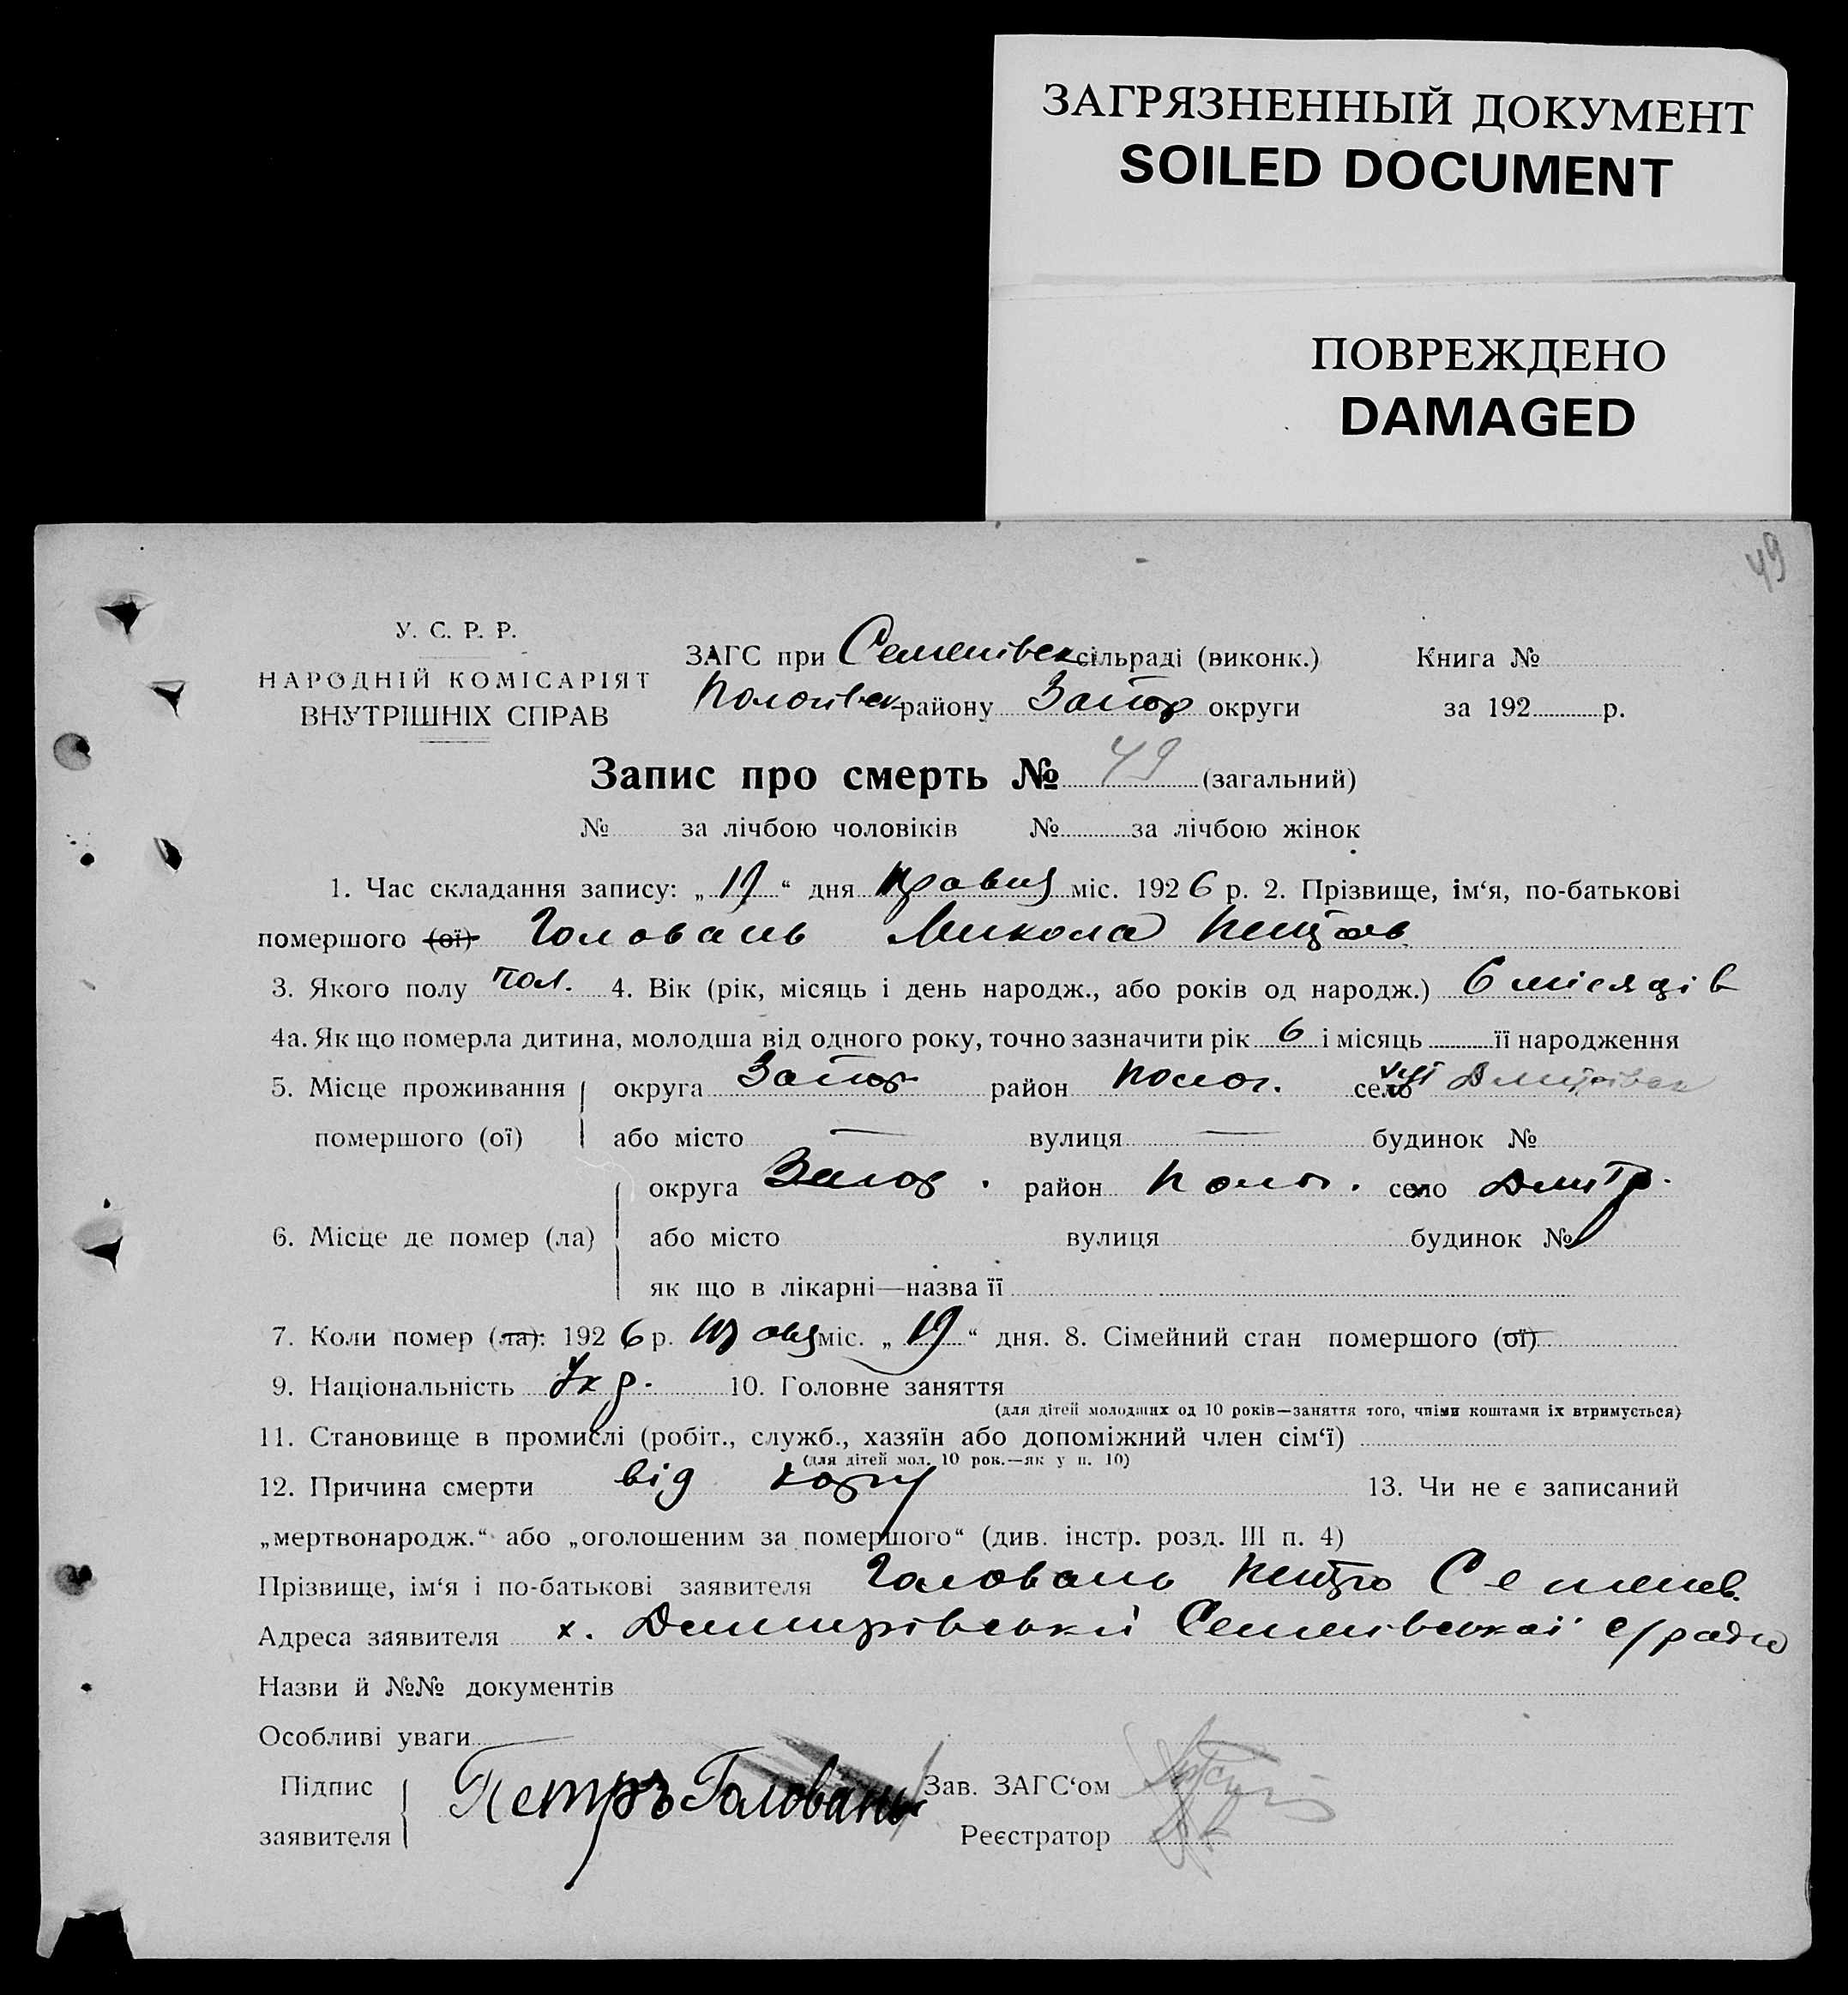 ЗАГРЯЗНЕННЫЙ ДОКУМЕНТ
SOILED DOCUMENT
ПОВРЕЖДЕНО
DAMAGED
49
У. С. Р. Р.
НАРОДНІЙ КОМІСАРІЯТ
ВНУТРІШНІХ СПРАВ
ЗАГС при Семенівск сільраді (виконк.) Книга №
Пологівск району Запор округи за 192 р.
Запис про смерть № 49 (загальний)
№ за лічбою чоловіків № за лічбою жінок
1. Час складання запису: „19“ дня травня міс. 1926 р. 2. Прізвище, ім‘я, по-батькові
помершого (ої) Головань Микола Петров
3. Якого полу чол. 4. Вік (рік, місяць і день народж., або років од народж.) 6 місяців
4а. Як що померла дитина, молодша від одного року, точно зазначити рік 6 і місяць її народження
5. Місце проживання округа Запор район Полог. село Дмитрівск
помершого (ої) або місто — вулиця — будинок №
округа Запор. район Полог. село Дмитр.
6. Місце де помер (ла) або місто вулиця будинок №
як що в лікарні—назва її
7. Коли помер (ла): 1926 р. травня міс. „19“ дня. 8. Сімейний стан помершого (ої)
9. Національність Укр. 10. Головне заняття
(для дітей молодших од 10 років—заняття того, чиїми коштами їх втримується)
11. Становище в промислі (робіт., служб., хазяїн або допоміжний член сім‘ї)
(для дітей мол. 10 рок.—як у п. 10)
12. Причина смерти від кору 13. Чи не є записаний
„мертвонародж.“ або „оголошеним за помершого“ (див. інстр. розд. III п. 4)
Прізвище, ім‘я і по-батькові заявителя Головань Петро Семенов.
Адреса заявителя х. Дмитрівський Семенівської с/ради
Назви й №№ документів
Особливі уваги
Підпис Петръ Головань Зав. ЗАГС‘ом
заявителя Реєстратор